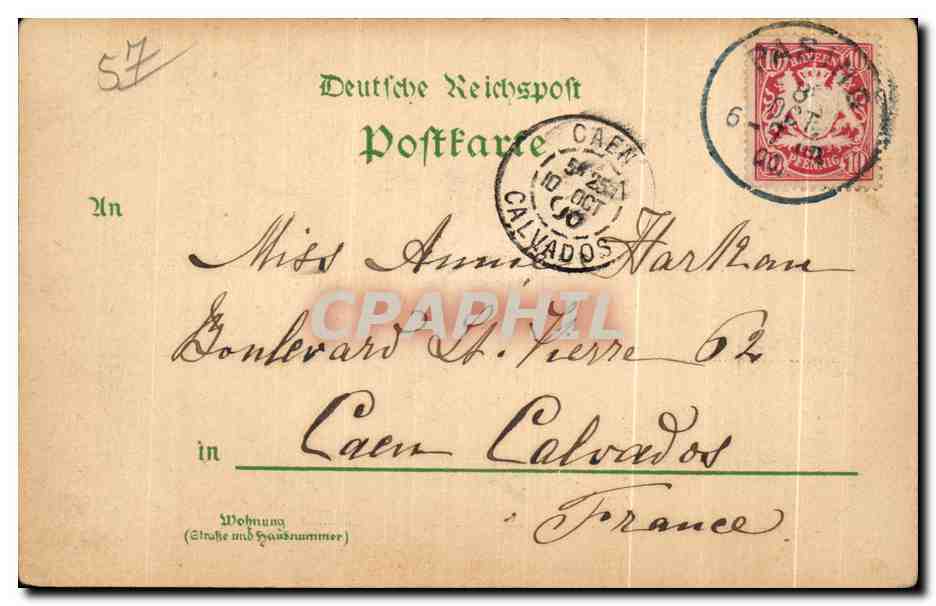 57
Deutsche Reichspost
Postkarte
BAYERN
10 10
PFENNIG 10
OCT
6-7
00
CAEN
5E 25
10 OCT
00
CALVADOS
An
Miss Annie Harkan
CPAPHIL
Boulevard St. Pierre 62
in Caen Calvados
France
Wohnung
(Straße und Hausnummer)